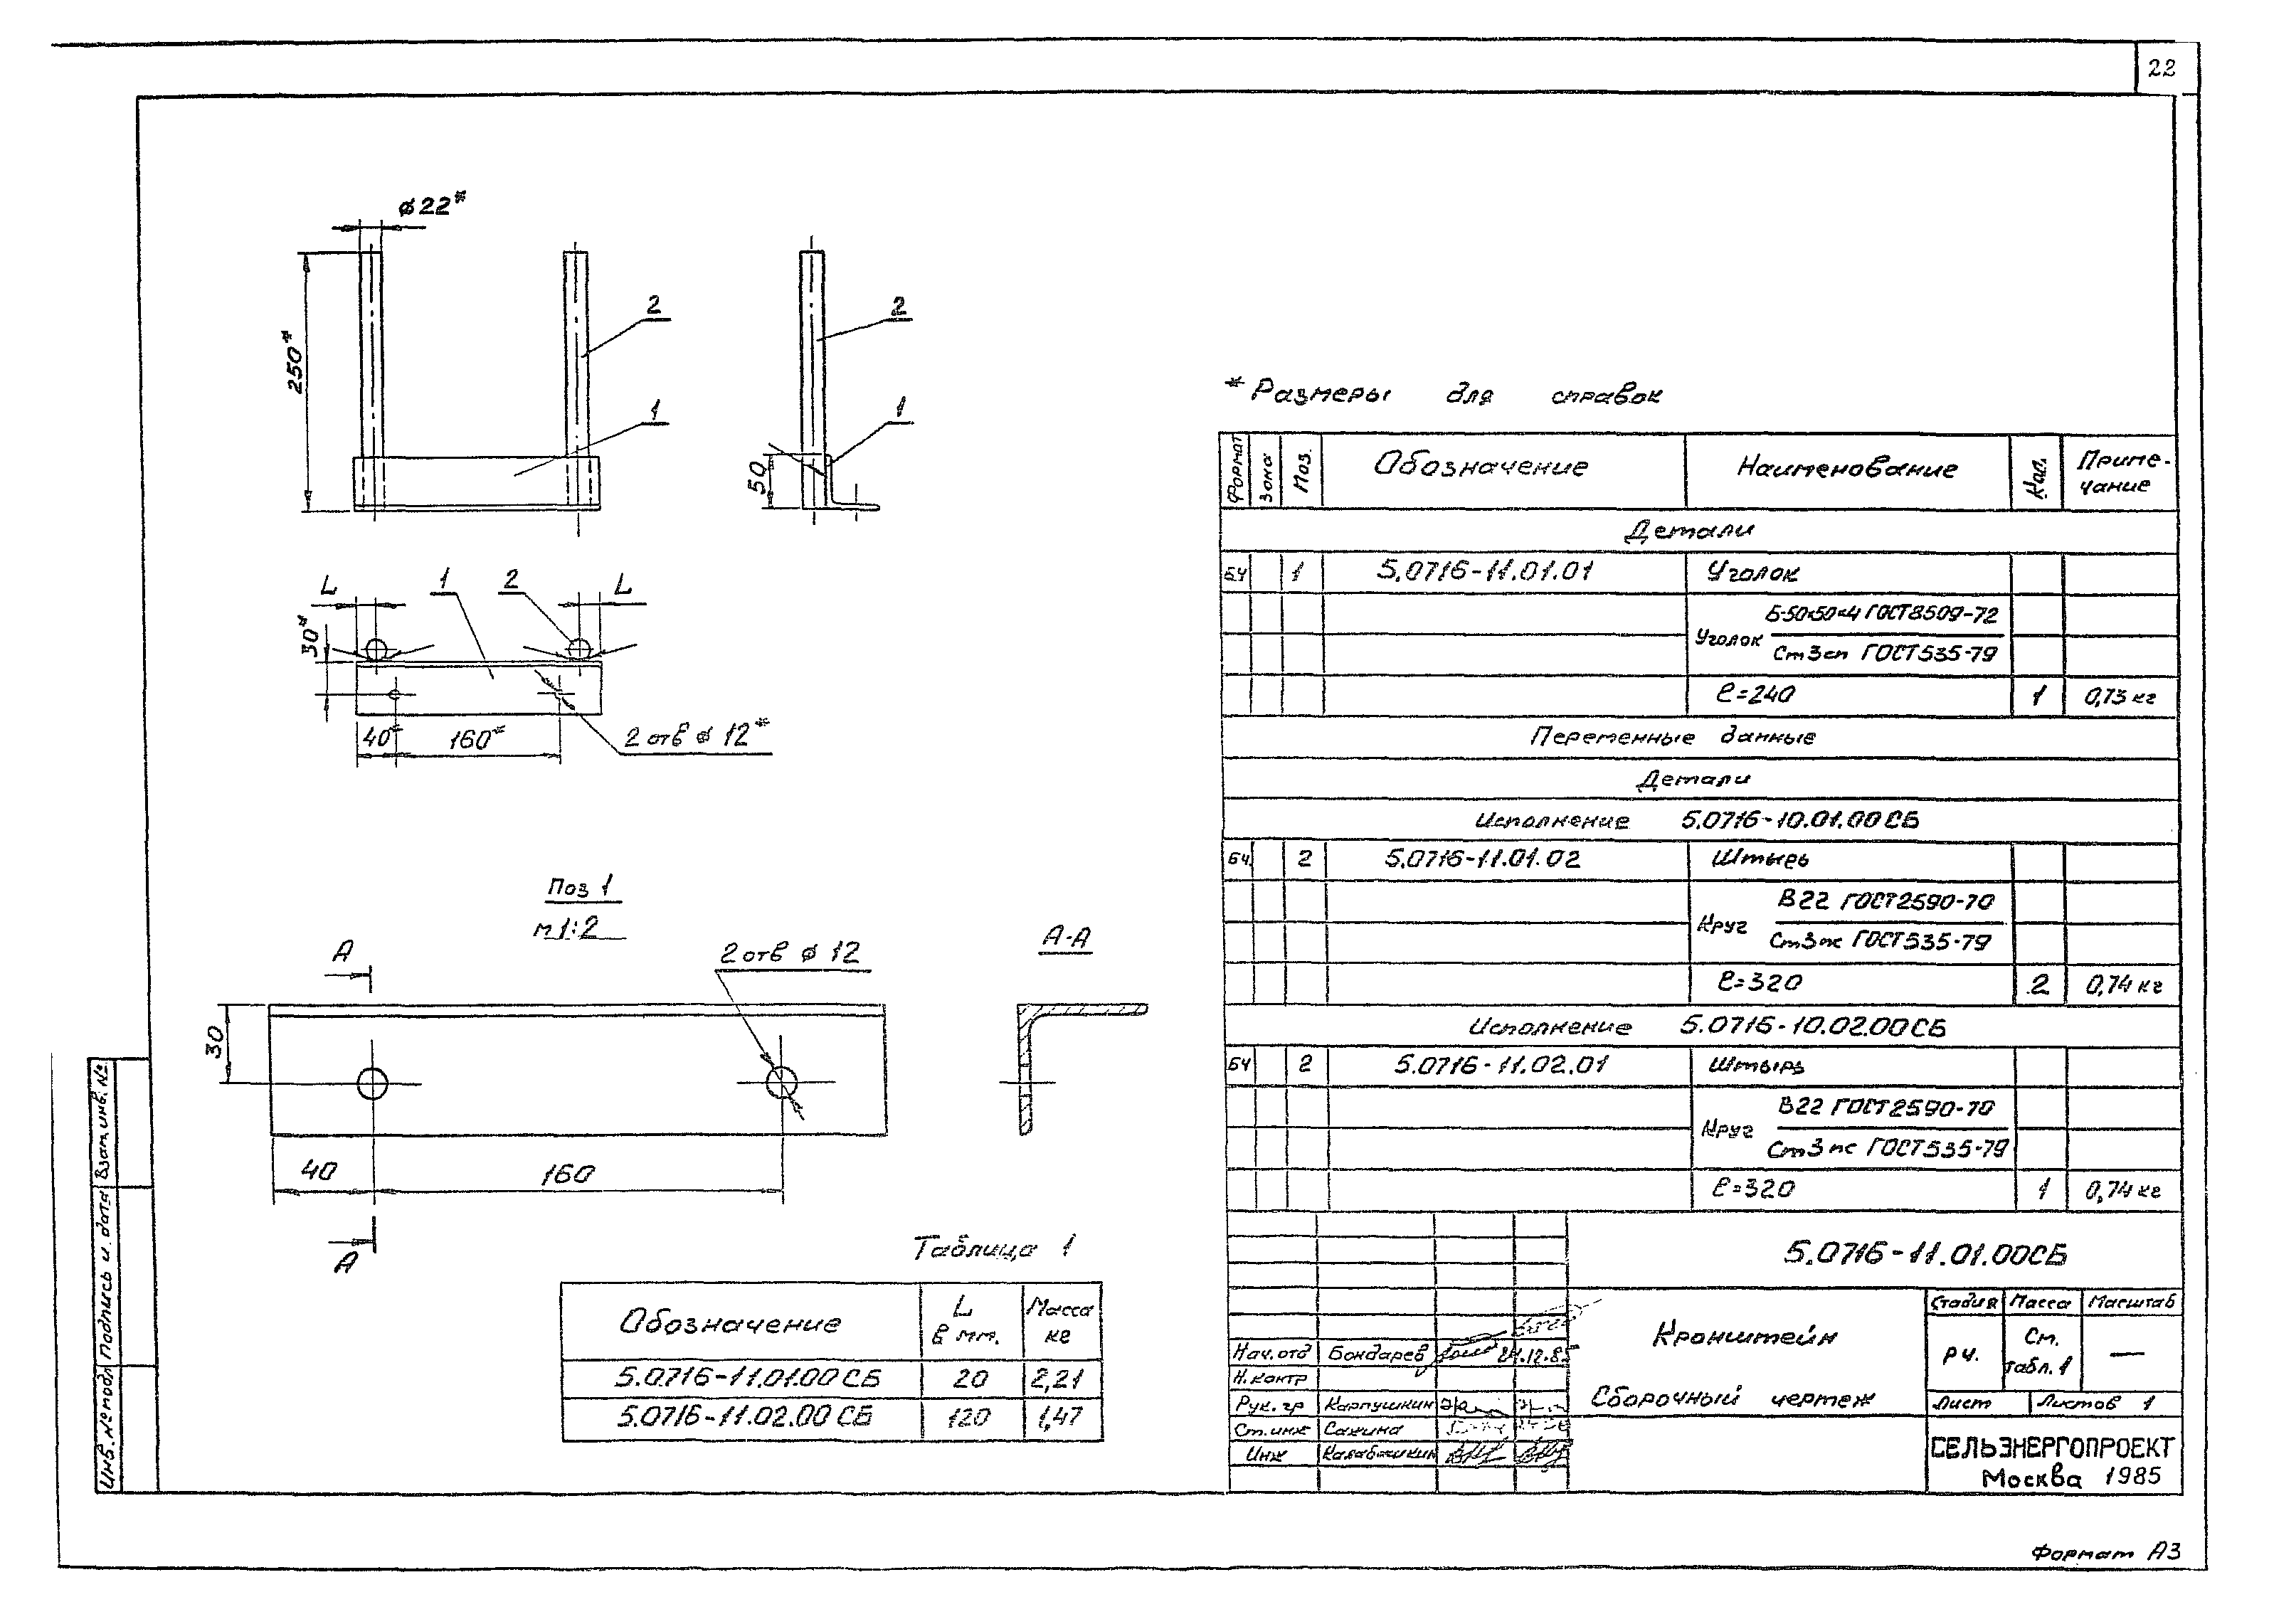 22
⌀22*
250*
2
1
2
1
50
L
1
2
L
30*
40*
160*
2 отв ⌀ 12*
Поз 1
М 1:2
А
2 отв ⌀ 12
А-А
30
40
160
А
Таблица 1
Обозначение
L в мм.
Масса кг
5.0716-11.01.00 СБ 20 2,21
5.0716-11.02.00 СБ 120 1,47
* Размеры для справок
Формат Зона Поз. Обозначение Наименование Кол. Приме-
чание
Детали
БЧ 1 5.0716-11.01.01 Уголок
Б-50×50×4 ГОСТ 8509-72
Уголок
Ст3сп ГОСТ 535-79
ℓ=240 1 0,73 кг
Переменные данные
Детали
Исполнение 5.0716-10.01.00 СБ
БЧ 2 5.0716-11.01.02 Штырь
В22 ГОСТ 2590-70
Круг
Ст3пс ГОСТ 535-79
ℓ=320 2 0,74 кг
Исполнение 5.0716-10.02.00 СБ
БЧ 2 5.0716-11.02.01 Штырь
В22 ГОСТ 2590-70
Круг
Ст3пс ГОСТ 535-79
ℓ=320 1 0,74 кг
5.0716-11.01.00СБ
Кронштейн
Сборочный чертеж
Стадия Масса Масштаб
РЧ. См. табл. 1 —
Лист Листов 1
Нач. отд Бондарев
Н. контр
Рук. гр Карпушкин
Ст. инж Сажина
Инж Калабашкин
СЕЛЬЭНЕРГОПРОЕКТ
Москва 1985
Взам. инв. №
Подпись и дата
Инв. № подл
Формат А3